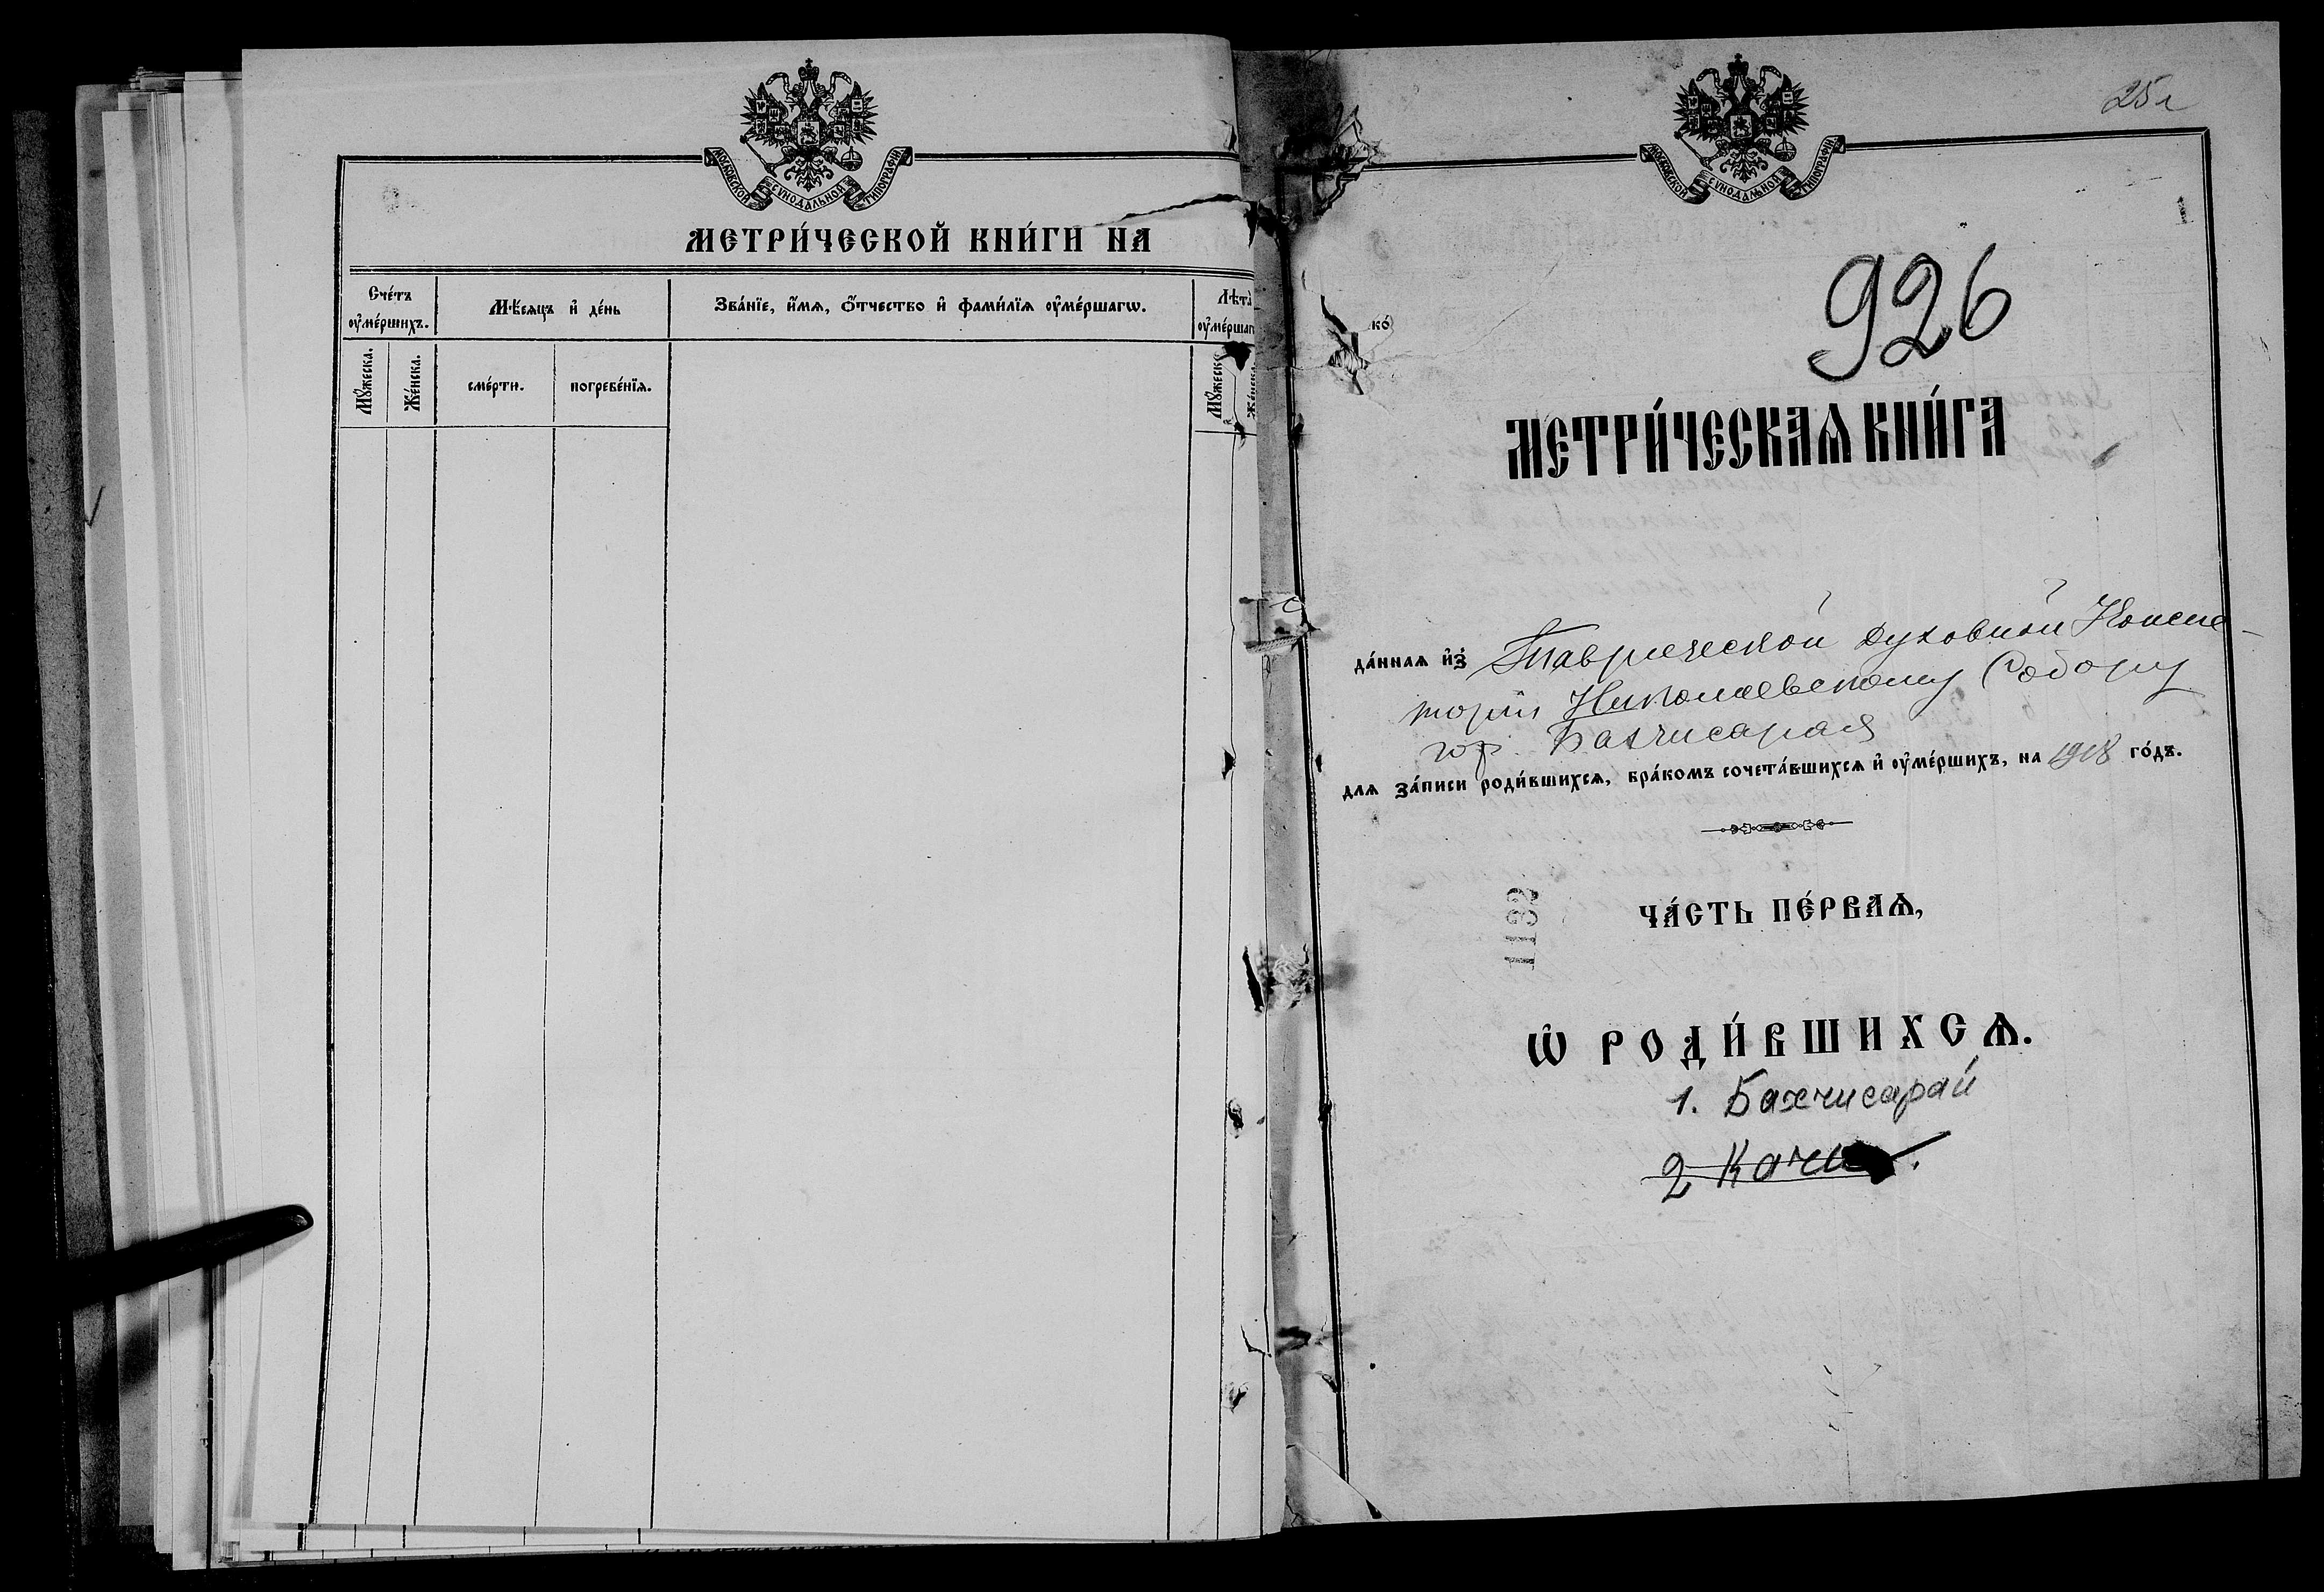 МОСКОВСКОЙ СѴНОДАЛЬНОЙ ТИПОГРАФІИ
МЕТРИ́ЧЕСКОЙ КНИ́ГИ НА
Сче́тъ ᲂу҆ме́ршихъ.
Мѣ́сѧцъ и҆ де́нь
Зва́нїе, и҆́мѧ, ѻ҆́тчество и҆ фами́лїѧ ᲂу҆ме́ршагѡ.
Лѣта̀ ᲂу҆ме́ршаг
Мꙋ́жеска.
Же́нска.
сме́рти.
погребе́нїѧ.
Мꙋ́жеска
Же́нска.
25 л
МОСКОВСКОЙ СѴНОДАЛЬНОЙ ТИПОГРАФІИ
1
926
ко́
МЕТРИ́ЧЕСКАѦ КНИ́ГА
да́ннаѧ и҆з̾ Таврической Духовной Консис-
торіи Николаевскому Собору
гор. Бахчисарая
длѧ за́писи роди́вшихсѧ, бра́комъ сочета́вшихсѧ и҆ ᲂу҆ме́ршихъ, на 1918 го́дъ.
1132
ЧА́СТЬ ПЕ́РВАѦ,
Ѡ҆ РОДИ́ВШИХСѦ.
1. Бахчисарай
2 Качи